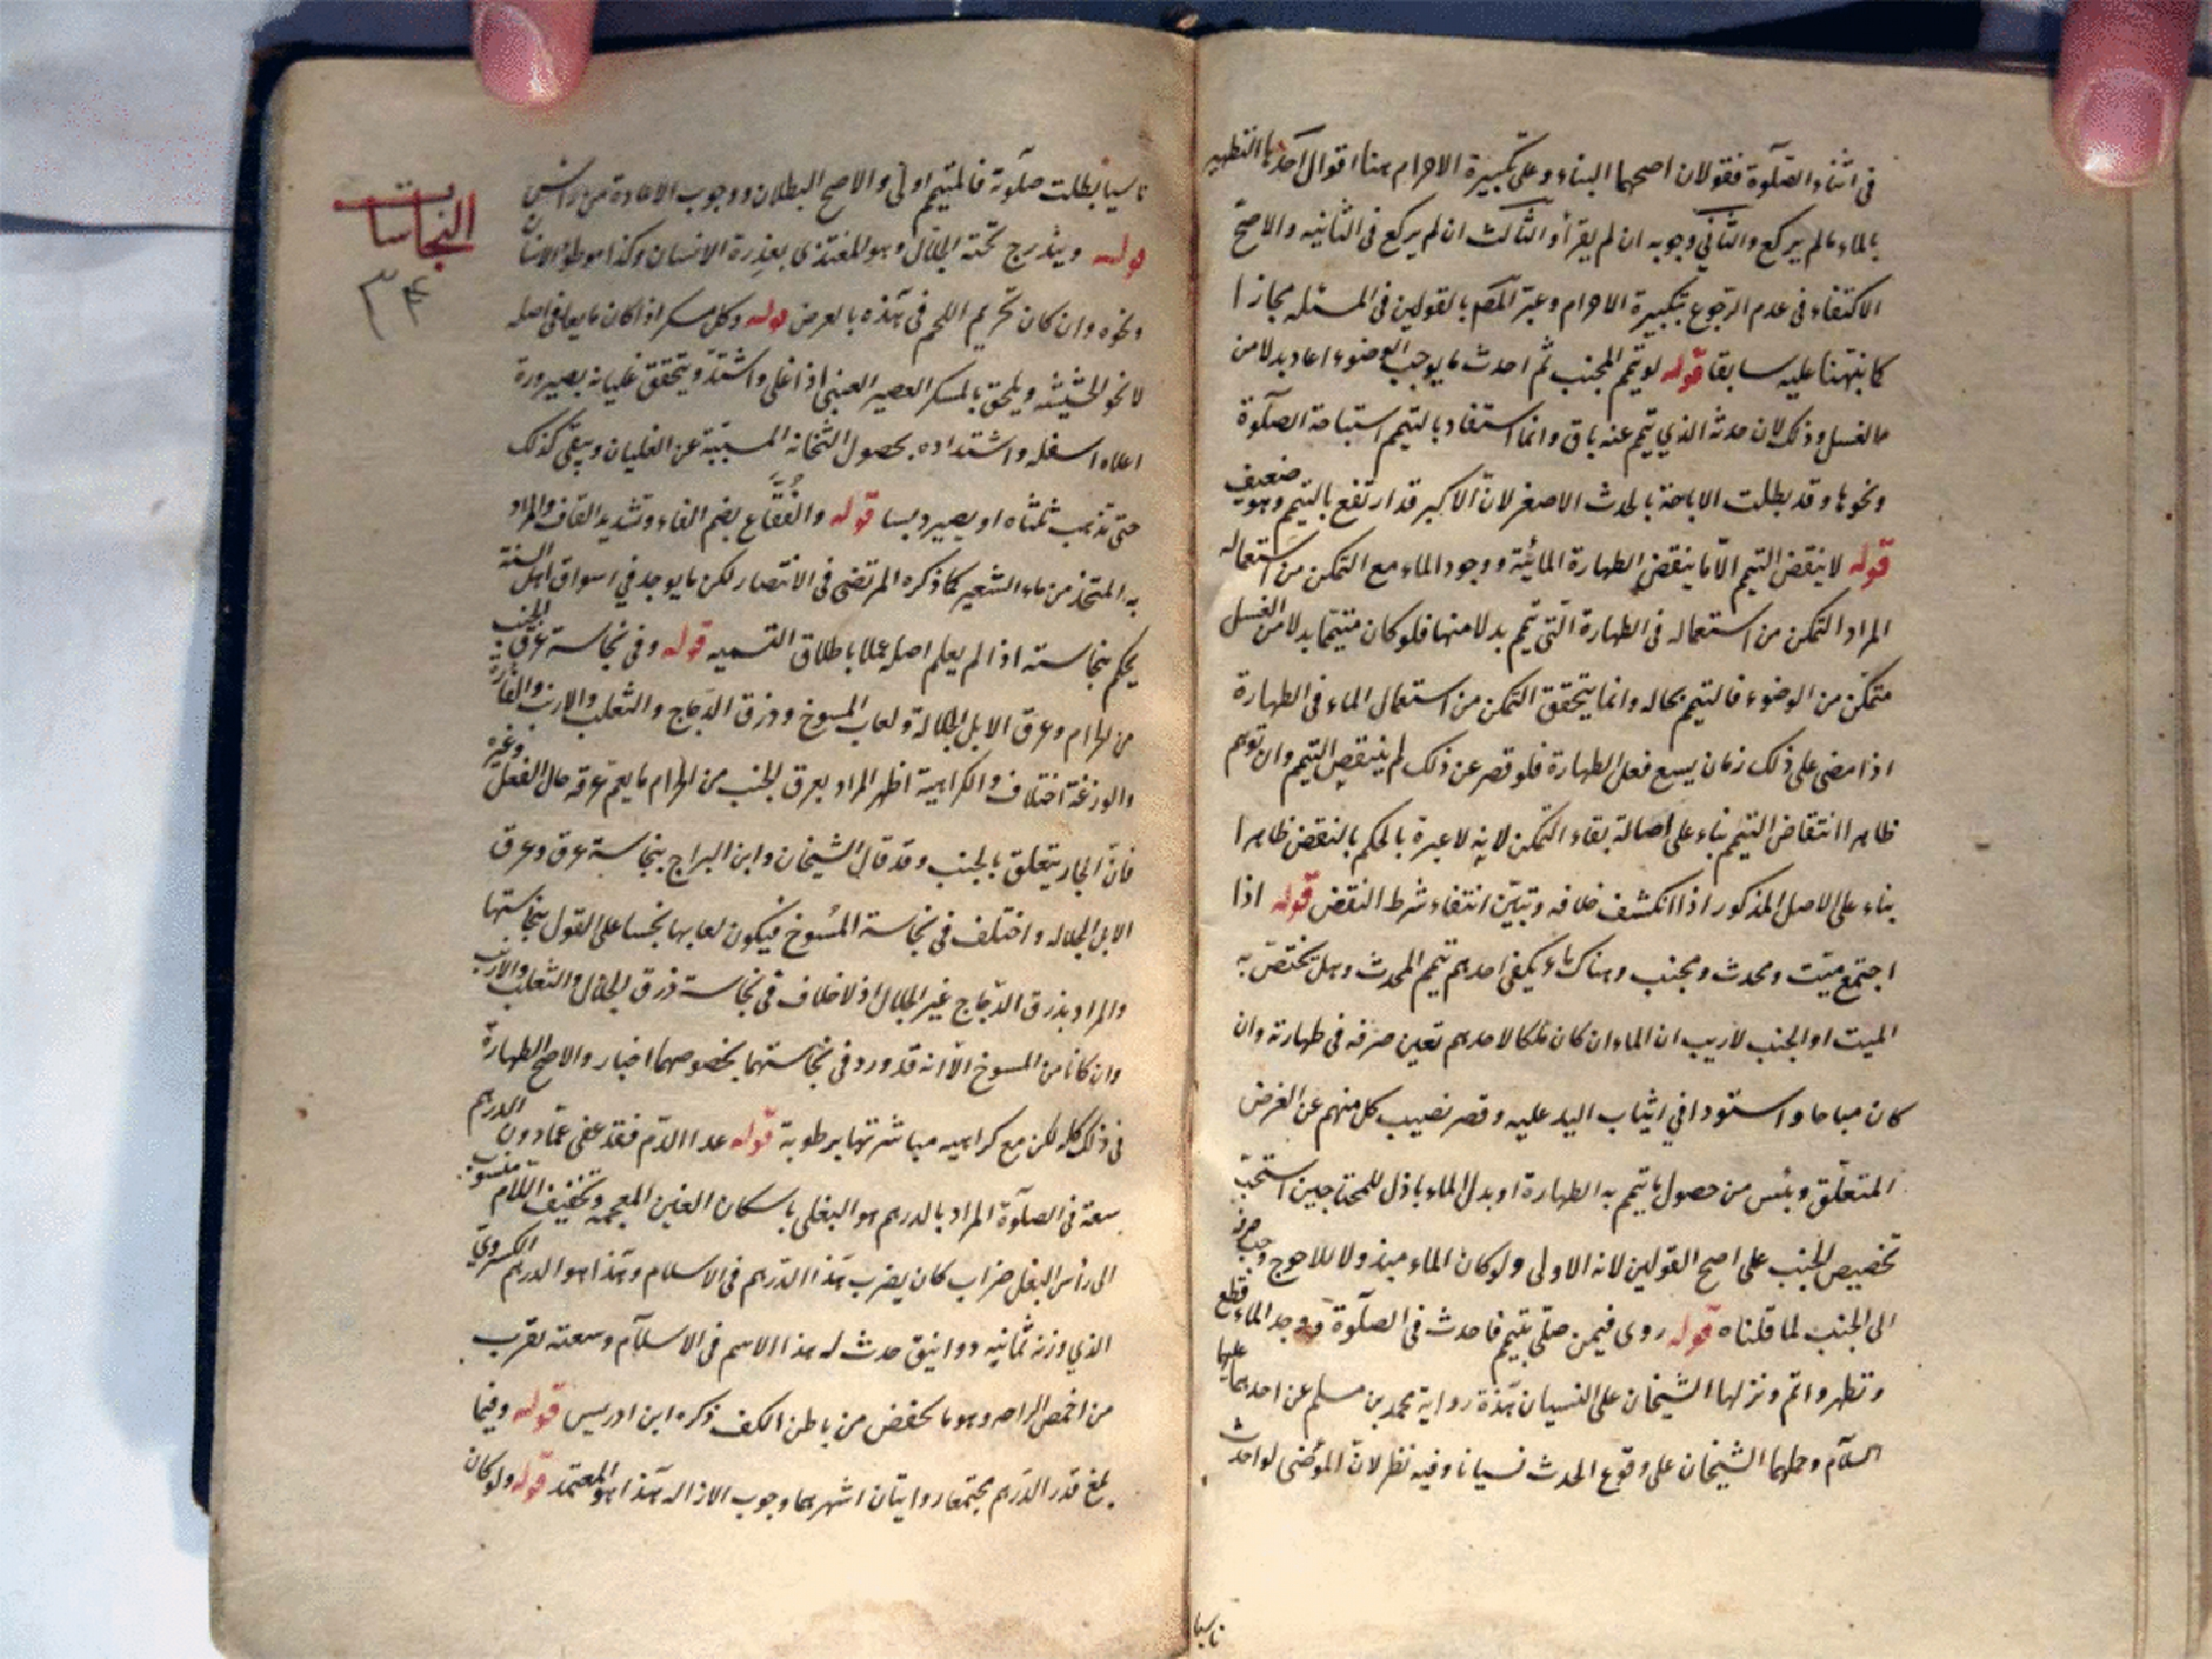 في اثناء الصلوة فقولان اصحهما البناء وعلى تكبيرة الاحرام هنا اقوال احدها التطهير
بالماء ما لم يركع والثاني وجوبه ان لم يقرأ والثالث ان لم يركع في الثانيه والاصح
الاكتفاء في عدم الرجوع بتكبيرة الاحرام وعبر المصم بالقولين في المسئله مجازا
كما نبهنا عليه سابقا قوله لو تيمم المجنب ثم احدث ما يوجب الوضوء اعاد بدلا من
الغسل وذلك لان حدثه الذي تيمم عنه باق وانما استفاد بالتيمم استباحة الصلوة
ونحوها وقد بطلت الاباحة بالحدث الاصغر لان الاكبر قد ارتفع بالتيمم وهو ضعيف
قوله لا ينقض التيمم الا ما ينقض الطهارة المائية ووجود الماء مع التمكن من استعماله
المراد التمكن من استعماله في الطهارة التي تيمم بدلا منها فلو كان متيمما بدلا من الغسل
متمكن من الوضوء فالتيمم بحاله وانما يتحقق التمكن من استعمال الماء في الطهارة
اذا مضى على ذلك زمان يسع فعل الطهارة فلو قصر عن ذلك لم ينتقض التيمم وان توهم
ظاهرا انتقاض التيمم بناء على اصالة بقاء التمكن لانه لا عبرة بالحكم بالنقض ظاهرا
بناء على الاصل المذكور اذا انكشف خلافه وتبين انتفاء شرط النقض قوله اذا
اجتمع ميت ومحدث ومجنب وهناك ماء يكفي احدهم تيمم المحدث وهل يختص به
الميت او الجنب لا ريب ان الماء ان كان ملكا لاحدهم تعين صرفه في طهارته وان
كان مباحا واستووا في اثبات اليد عليه وقصر نصيب كل منهم عن الغرض
المتعلق ويئس من حصول ما يتم به الطهارة او بدل الماء باذل للمحتاجين استحب
تخصيص الجنب على اصح القولين لانه الاولى ولو كان الماء مبذولا للاحوج وجب صرفه
الى الجنب لما قلناه قوله روى فيمن صلى بتيمم فاحدث في الصلوة ووجد الماء قطع
وتطهر واتم ونزلها الشيخان على النسيان هذه رواية محمد بن مسلم عن احدهما عليهما
السلام وحملها الشيخان على وقوع الحدث نسيانا وفيه نظر لان المتوضي لو احدث
ناسيا
ناسيا بطلت صلوته فالمتيمم اولى والاصح البطلان ووجوب الاعادة من راس
قوله ويندرج تحته الجلال وهو المغتذى بعذرة الانسان وكذا موطوء الانسان
ونحوه وان كان تحريم اللحم في هذه بالعرض قوله وكل مسكر اذا كان مايعا في اصله
لا نحو الحشيشه ويلحق بالمسكر العصير العنبي اذا غلى واشتد ويتحقق غليانه بصيرورة
اعلاه اسفله واشتداده بحصول الثخانة المسببة عن الغليان ويبقى كذلك
حتى تذهب ثلثاه او يصير دبسا قوله والفقاع بضم الفاء وتشديد القاف والمراد
به المتخذ من ماء الشعير كما ذكره المرتضى في الانتصار لكن ما يوجد في اسواق اهل السنة
يحكم بنجاسته اذا لم يعلم اصله عملا باطلاق التسميه قوله وفي نجاسة عرق الجنب
من الحرام وعرق الابل الجلالة ولعاب المسوخ وذرق الدجاج والثعلب والارنب والفأرة
والوزغة اختلاف والكراهية اظهر المراد بعرق الجنب من الحرام ما يعم عرقه حال الفعل وغيره
فان الجار يتعلق بالجنب وقد قال الشيخان وابن البراج بنجاسة عرقه وعرق
الابل الجلاله واختلف في نجاسة المسوخ فيكون لعابها نجسا على القول بنجاستها
والمراد بذرق الدجاج غير الجلال اذ لا خلاف في نجاسة ذرق الجلال والثعلب والارنب
وان كانا من المسوخ الا انه قد ورد في نجاستهما بخصوصهما اخبار والاصح الطهارة
في ذلك كله لكن مع كراهيه مباشرتها برطوبة قوله عدا الدم فقد عفى عما دون الدرهم
سعة في الصلوة المراد بالدرهم هو البغلي باسكان الغين المعجمه وتخفيف اللام منسوب
الى رأس البغل ضراب كان يضرب هذا الدرهم في الاسلام وهذا هو الدرهم الكسروي
الذي وزنه ثمانيه دوانيق حدث له هذا الاسم في الاسلام وسعته تقرب
من اخمص الراحه وهو ما انخفض من باطن الكف ذكره ابن ادريس قوله وفيما
بلغ قدر الدرهم مجتمعا روايتان اشهرهما وجوب الازاله هذا هو المعتمد قوله ولو كان
النجاسات
۳۴